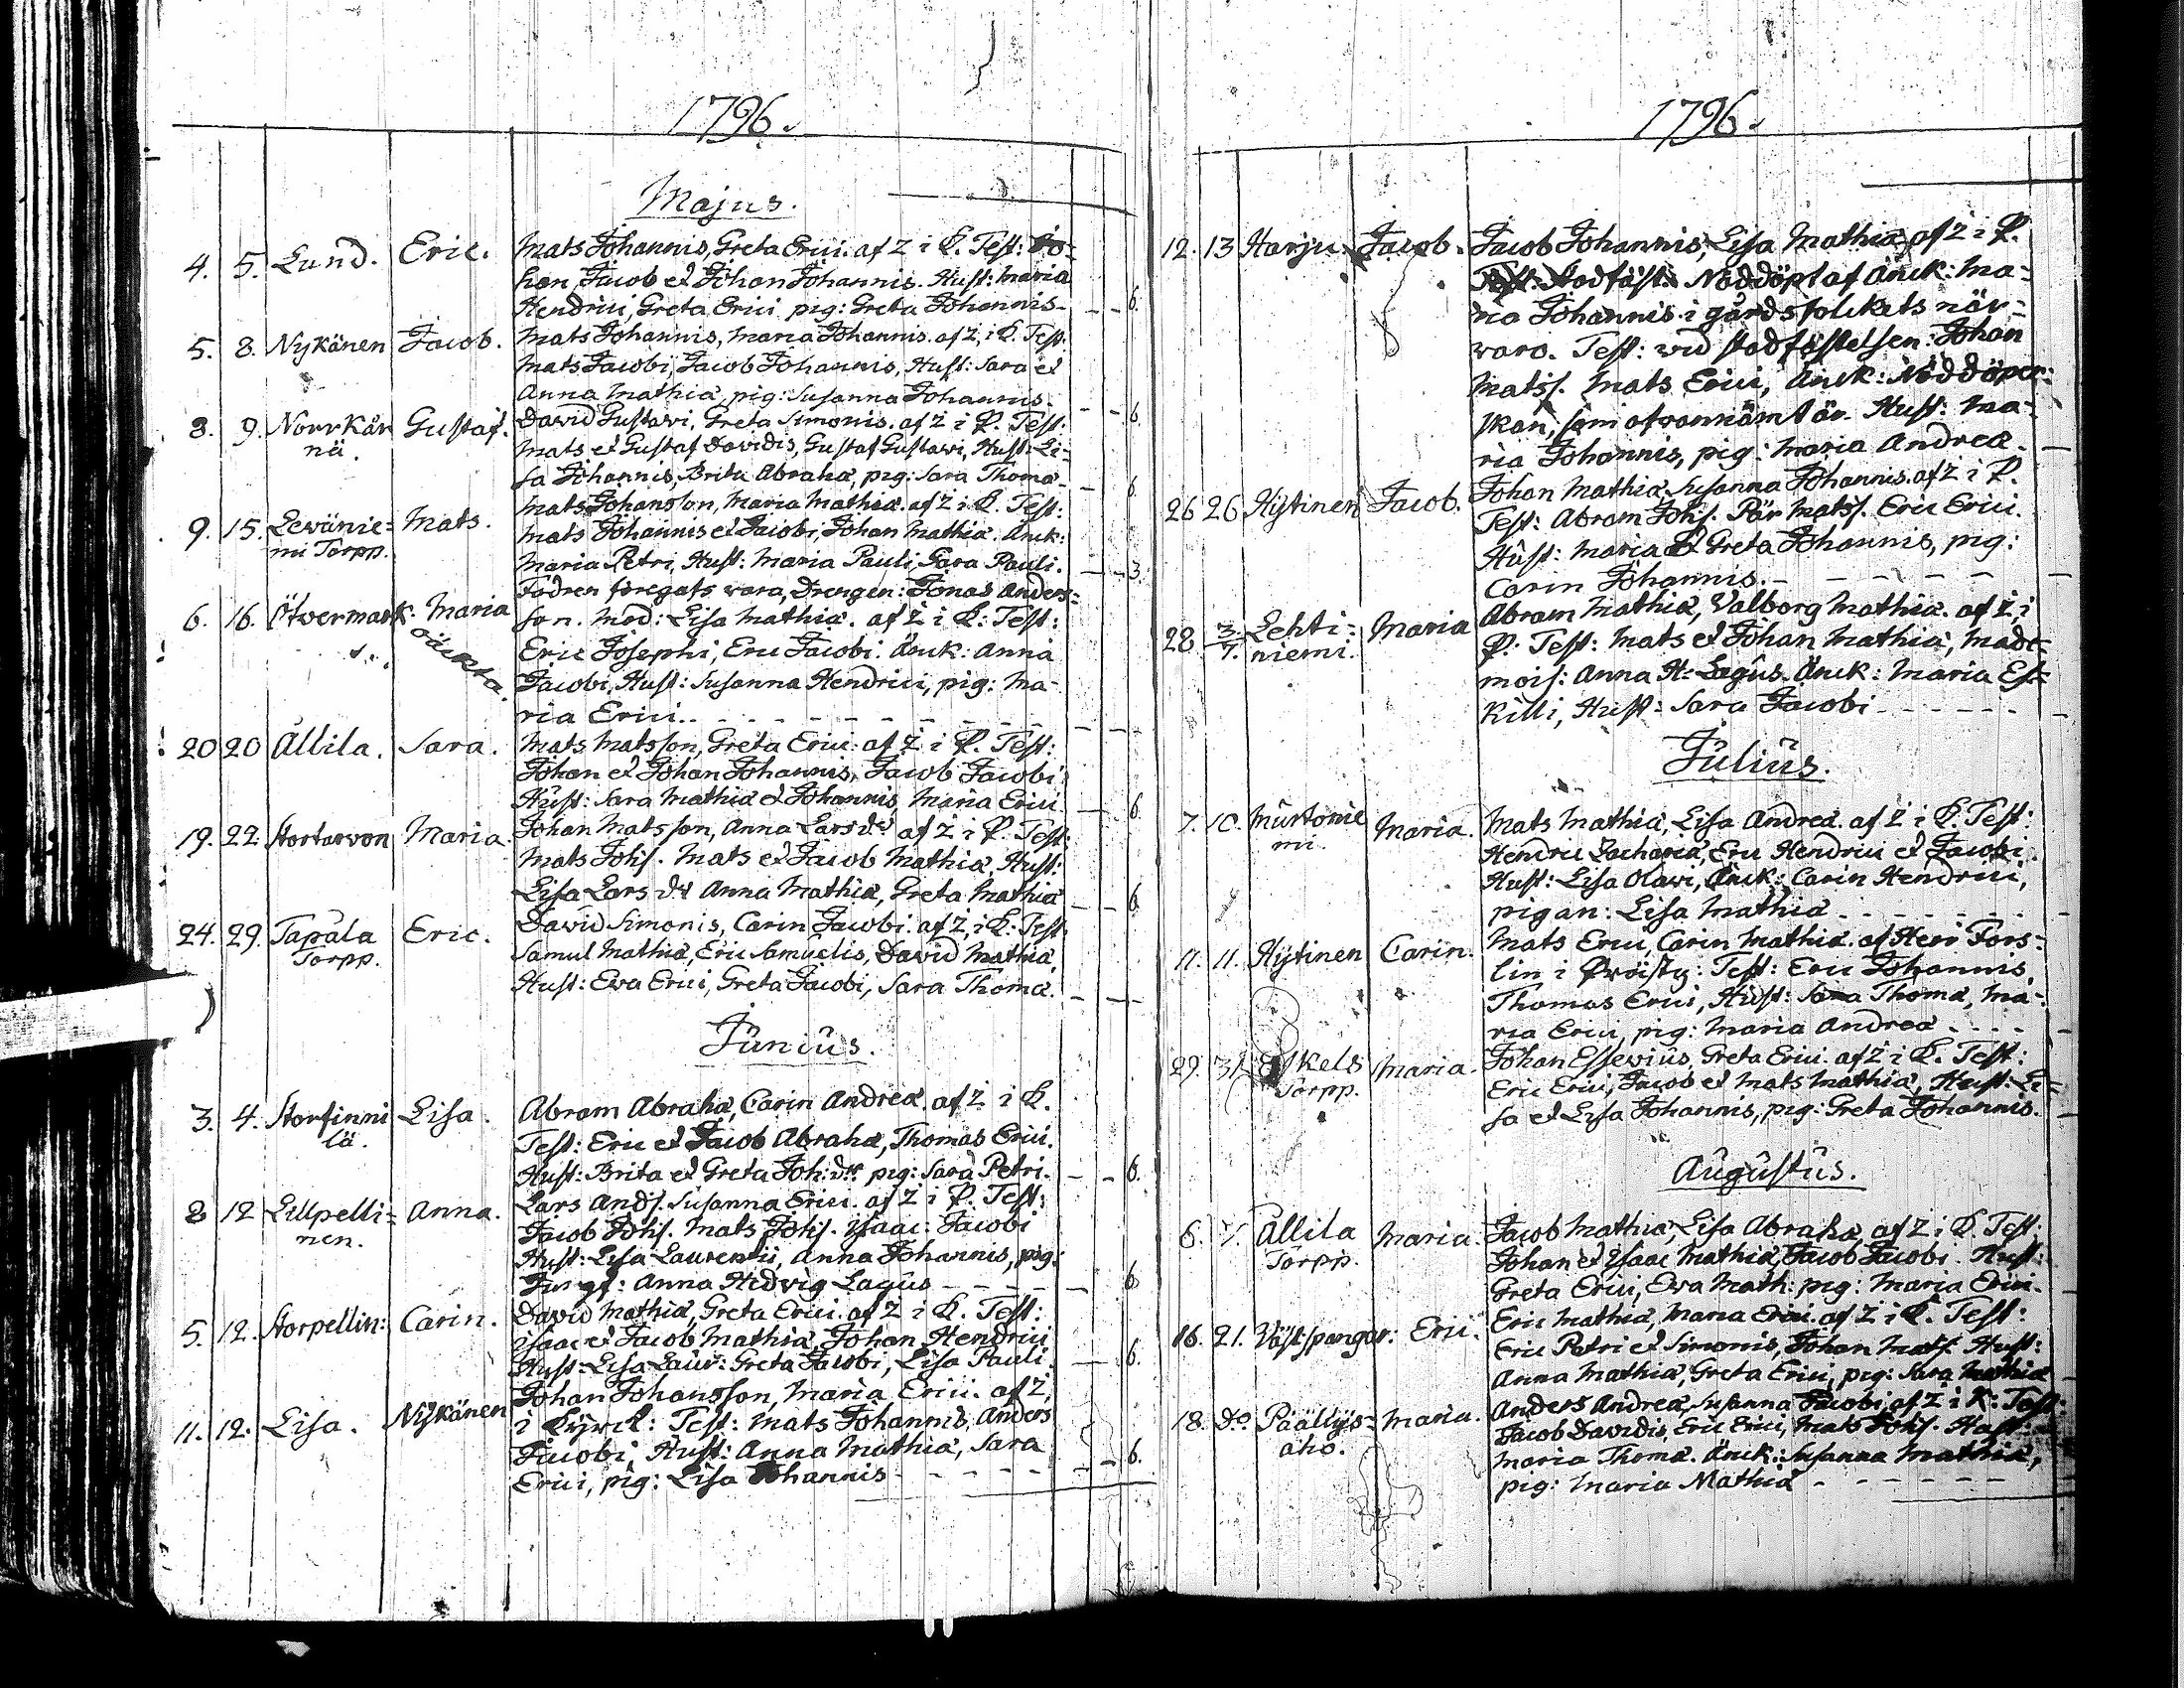 1796.
Majus.
4. 5. Lund. Eric. Mats Johannis, Greta Erici. af Z i K. Test: Jo-
han, Jacob et Johan Johannis. Hust: Maria
Hendrici, Greta Erici pig: Greta Johannis - - 6.
5. 8. Nykänen Jacob. Mats Johannis, Maria Johannis. af Z. i K. Test:
Mats Jacobi, Jacob Johannis, Hust: Sara et
Anna Mathiæ, pig: Susanna Johannis. - - 6
8. 9. Norrkär Gustaf. David Gustavi, Greta Simonis. af Z i P. Test:
nä. Mats et Gustaf Davidis, Gustaf Gustavi, Hust: Li-
sa Johannis, Brita Abrahæ, pig: Sara Thomæ - - 6.
9. 15. Levänie= Mats. Mats Johansson, Maria Mathiæ. af Z i K. Test:
mi Torpp. Mats Johannis et Jacobi, Johan Mathiæ. Änck:
Maria Petri, Hust: Maria Pauli, Sara Pauli. - - 3.
Fadren föregafs vara, Drengen: Jonas Anders=
6. 16. Ötvermark. Maria son. Mod: Lisa Mathiæ. af Z i K: Test:
oäckta. Eric Josephi, Eric Jacobi. Änck: Anna
Jacobi, Hust: Susanna Hendrici, pig: Ma-
ria Erici. - - - - - - - - -
20 20 Ållila. Sara. Mats Matsson, Greta Erici. af Z i P. Test:
Johan et Johan Johannis, Jacob Jacobi
Hust: Sara Mathiæ et Johannis Maria Erici - 6
19. 22. Stortarvon Maria. Johan Matsson, Anna Larsdr af Z i P. Test:
Mats Johs. Mats et Jacob Mathiæ, Hust:
Lisa Lars dr Anna Mathiæ, Greta Mathiæ - - 6
24. 29. Tapala Eric. David Simonis, Carin Jacobi. af Z. i K: Test:
Torpp. Samul Mathiæ, Eric Samuelis, David Mathiæ,
Hust: Eva Erici, Greta Jacobi, Sara Thomæ. - -
Junius.
3. 4. Storfinni Lisa. Abram Abrahæ, Carin Andreæ. af Z i K.
lä. Test: Eric et Jacob Abrahæ, Thomas Erici.
Hust: Brita et Greta Joh: dr. pig: Sara Petri. - - 6.
8 12 Lillpelli= Anna. Lars Ands. Susanna Erici. af Z i P. Test:
nen. Jacob Johs. Mats Johs. Isaac: Jacobi
Hust: Lisa Laurentii, Anna Johannis, pig:
Jungf: Anna Hedvig Lagus - - - - 6
5. 12. Storpellin: Carin. David Mathiæ, Greta Erici. af Z i K. Test:
Isaac et Jacob Mathiæ, Johan Hendrici
Hust: Lisa Laur: Greta Jacobi, Lisa Pauli - 6.
11. 12. Lisa. Nykänen Johan Johansson, Maria Erici. af Z.
i Test: Mats Johannis, Anders
Jacobi, Hust: Anna Mathiæ, Sara
Erici, pig: Lisa Johannis - - - - - 6.
1796.
12. 13 Harju. Jacob. Jacob Johannis, Lisa Mathiæ af Z i P.
Nöddöpt af Änck: Ma-
ria Johannis i gårdsfolckets när-
varo. Test: vid stadfästelsen: Johan
Matss. Mats Erici, Änck: Nöddöper-
skan, som ofvannämt är. Hust: Ma-
ria Johannis, pig: Maria Andreæ. -
26 26 Hytinen Jacob. Johan Mathiæ Susanna Johannis. af Z i P.
Test: Abram Johs. Pär Matss. Eric Erici.
Hust: Maria et Greta Johannis, pig:
Carin Johannis. - - - - - -
28 3/7. Lehti- Maria Abram Mathiæ, Valborg Mathiæ. af Z. i
niemi. P. Test: Mats et Johan Mathiæ, Made-
mois: Anna H: Lagus. Änck: Maria Es-
killi, Hust: Sara Jacobi - - - - - -
Julius.
7. 10. Murtonie Maria. Mats Mathiæ, Lisa Andreæ. af Z i K. Test:
mi. Hendric Zachariæ, Eric Hendrici et Jacobi.
Hust: Lisa Olavi, Änck: Carin Hendrici,
pigan: Lisa Mathiæ - - - - - -
11. 11. Hytinen Carin. Mats Erici, Carin Mathiæ. af Herr Fors-
lin i Test: Eric Johannis,
Thomas Erici, Hust: Sara Thomæ, Ma-
ria Erici, pig: Maria Andreæ - - - -
29. 31. Eskels Maria. Johan Essevius, Greta Erici. af Z i K. Test:
Torpp. Eric Erici, Jacob et Mats Mathiæ, Hust: Li-
sa et Lisa Johannis, pig: Greta Johannis.
Augustus.
6. 7. Ållila Maria. Jacob Mathiæ, Lisa Abrahæ, af Z i K. Test:
Torpp. Johan et Isaac Mathiæ, Jacob Jacobi. Hust:
Greta Erici, Eva Math: pig: Maria Erici.
16. 21. Västspangar: Eric. Eric Mathiæ, Maria Erici. af Z i K. Test:
Eric Petri et Simonis, Johan Mats. Hust:
Anna Mathiæ, Greta Erici, pig: Sara Mathiæ
18. Do. Päällys- Maria. Anders Andreæ, Susanna Jacobi, af Z i K: Test:
aho. Jacob Davidis, Eric Erici, Mats Johs. Hust:
Maria Thomæ. Änck: Susanna Mathiæ,
pig: Maria Mathiæ - - - - -